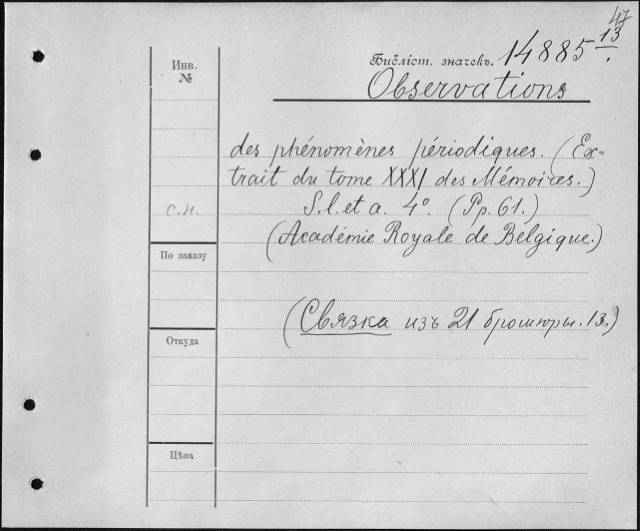 47
Библіот. значекъ. 14885 13
Observations
Инв.
№
des phénomènes périodiques. (Ex-
trait du tome XXXI des Mémoires.)
S. l. et a. 4°. (Pp. 61.)
С.Н.
(Académie Royale de Belgique.)
По заказу
(Связка изъ 21 брошюры. 13.)
Откуда
Цѣна